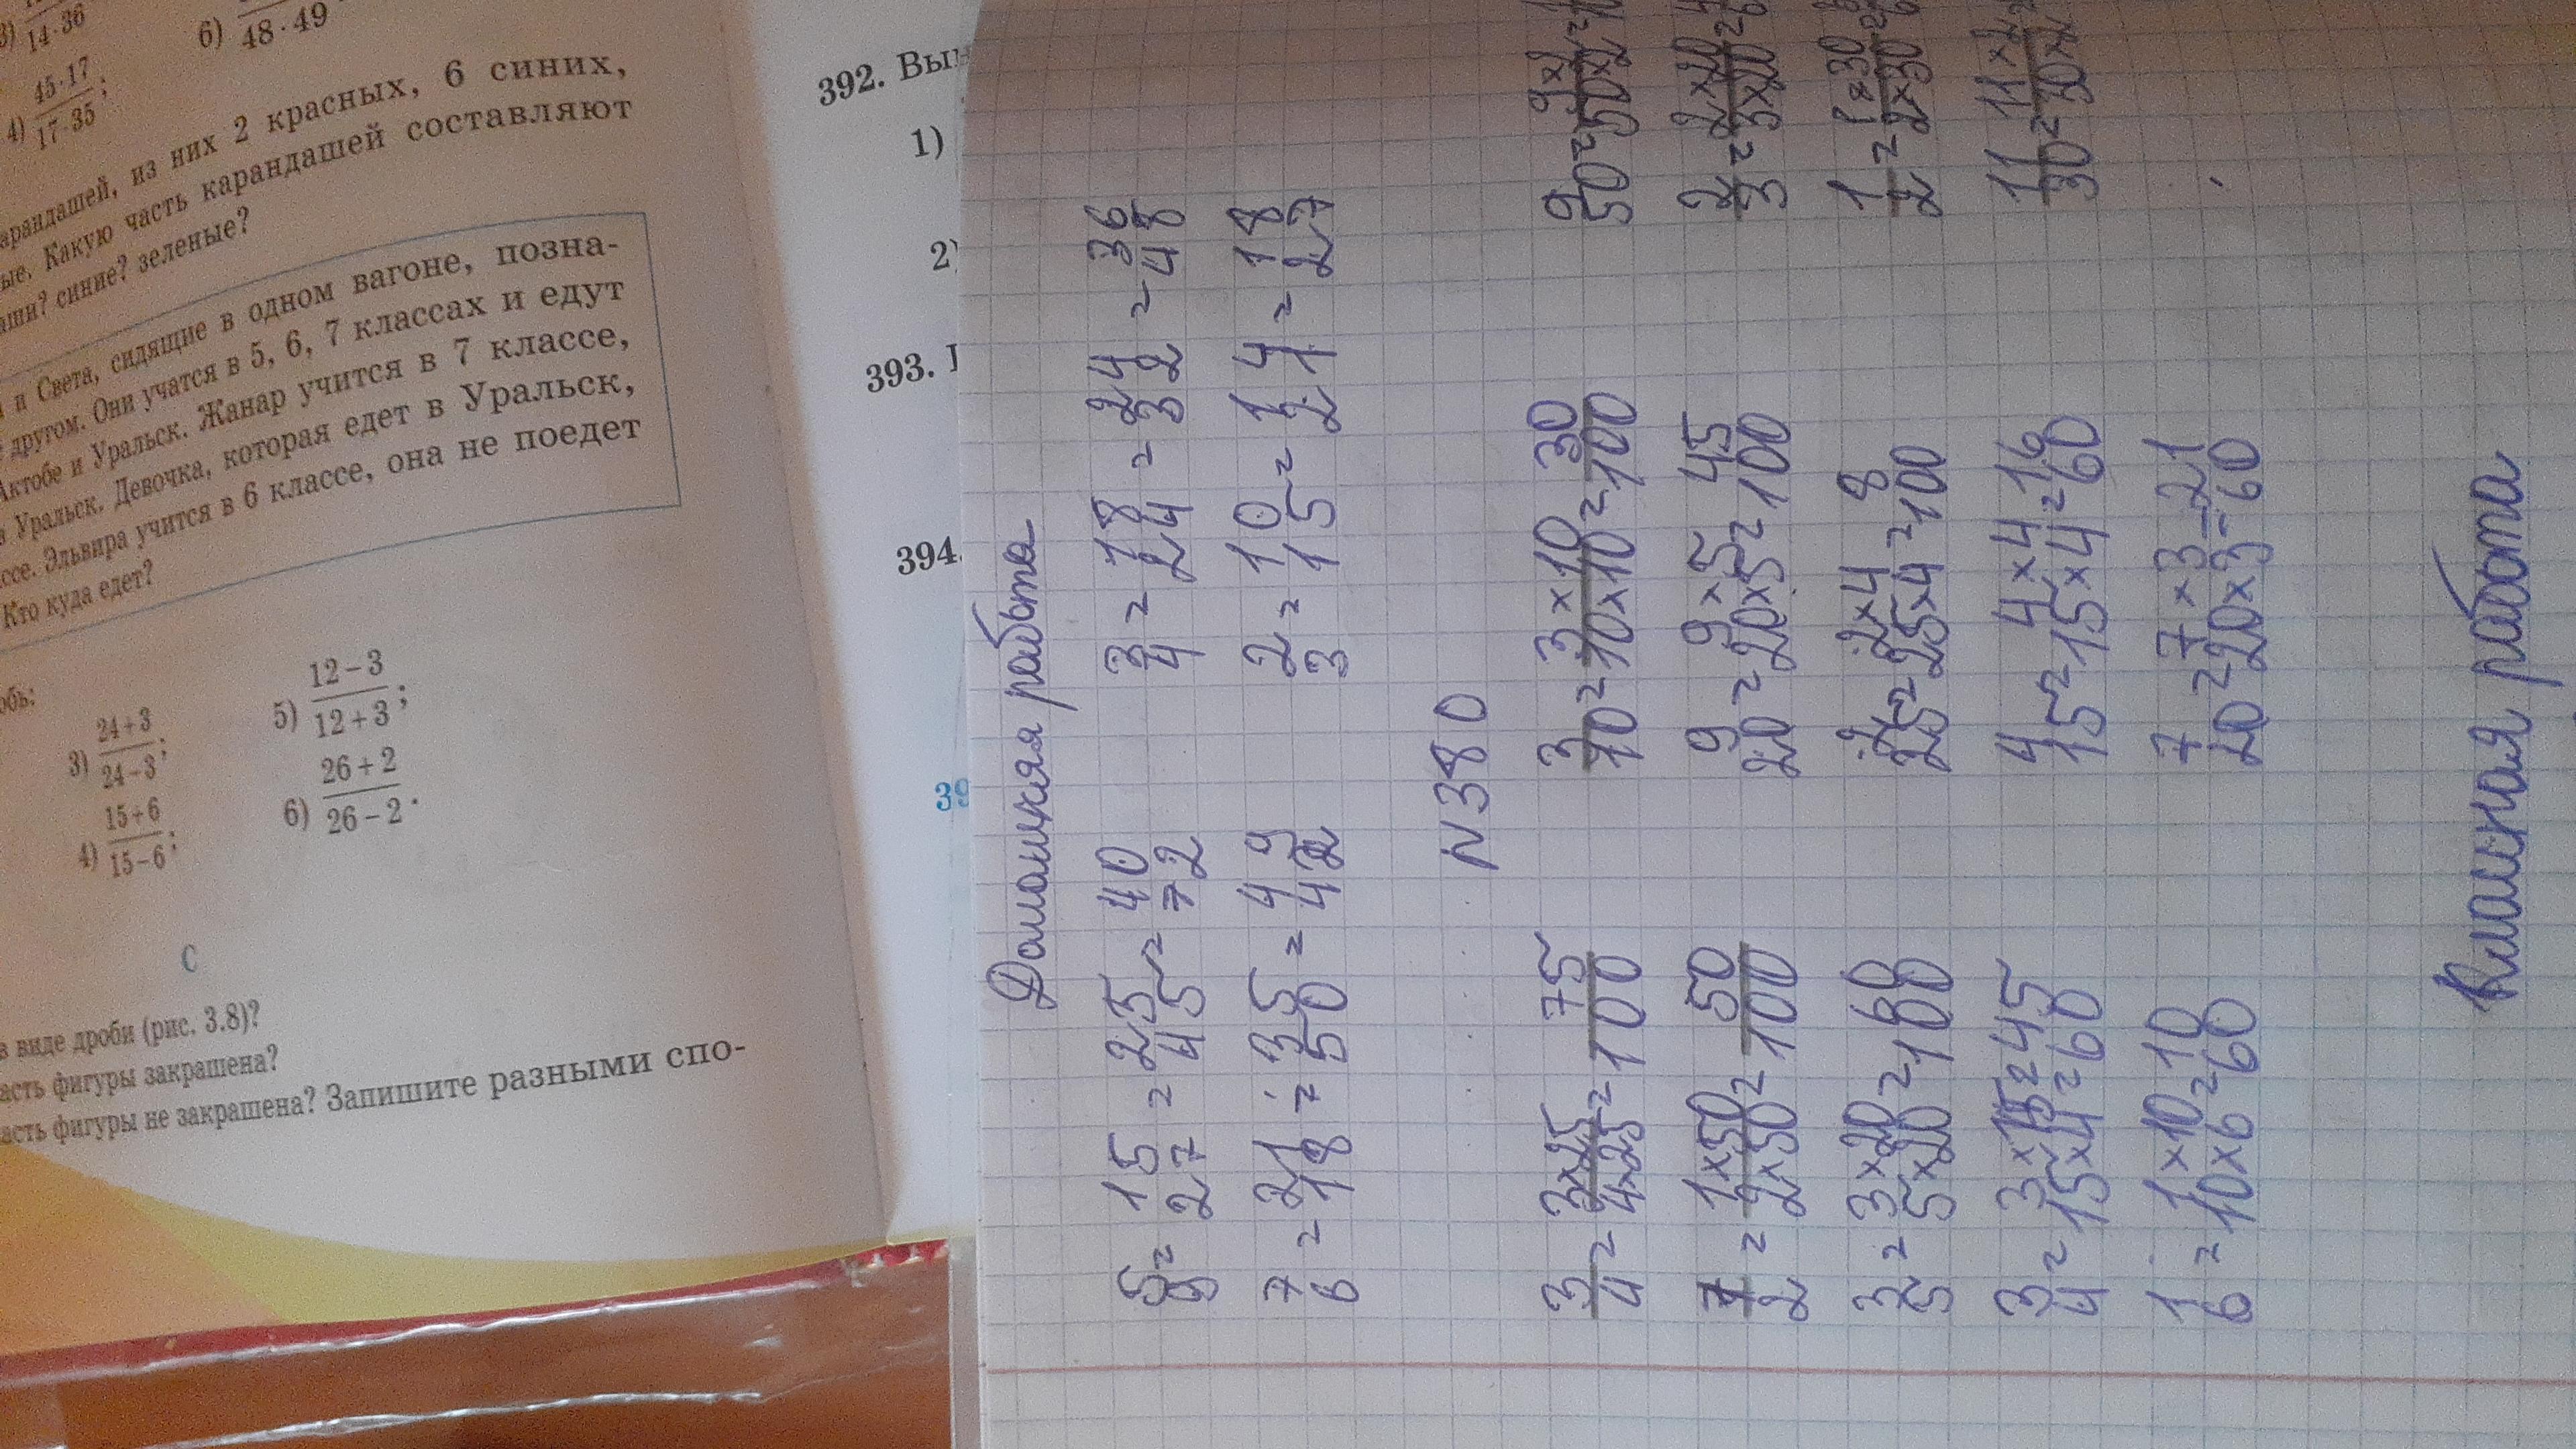 14·36
6) 48·49
4) 45·17 / 17·35;
из них 2 красных, 6 синих,
Какую часть карандашей составляют
синие? зеленые?
и Света, сидящие в одном вагоне, позна-
другом. Они учатся в 5, 6, 7 классах и едут
Актобе и Уральск. Жанар учится в 7 классе,
в Уральск. Девочка, которая едет в Уральск,
Эльвира учится в 6 классе, она не поедет
Кто куда едет?
3) 24+3 / 24−3; 5) 12−3 / 12+3;
4) 15+6 / 15−6; 6) 26+2 / 26−2.
С
в виде дроби (рис. 3.8)?
фигуры закрашена?
фигуры не закрашена? Запишите разными спо-
392.
1)
2)
393.
394.
39
Домашняя работа
5/9 = 15/27 = 25/45 = 40/72 3/4 = 18/24 = 24/32 = 36/48
7/6 = 21/18 = 35/50 = 49/42 2/3 = 10/15 = 14/21 = 18/27
N 380
3/4 = 3×25/4×25 = 75/100 3/10 = 3×10/10×10 = 30/100 9/50 = 9×2/50×2 =
1/2 = 1×50/2×50 = 50/100 9/20 = 9×5/20×5 = 45/100 2/3 = 2×20/3×20 =
3/5 = 3×20/5×20 = 60/100 2/25 = 2×4/25×4 = 8/100 1/2 = 1×30/2×30 =
3/4 = 3×15/15×4 = 45/60 4/15 = 4×4/15×4 = 16/60 11/30 = 11×2/30×2
1/6 = 1×10/10×6 = 10/60 7/20 = 7×3/20×3 = 21/60
Классная работа